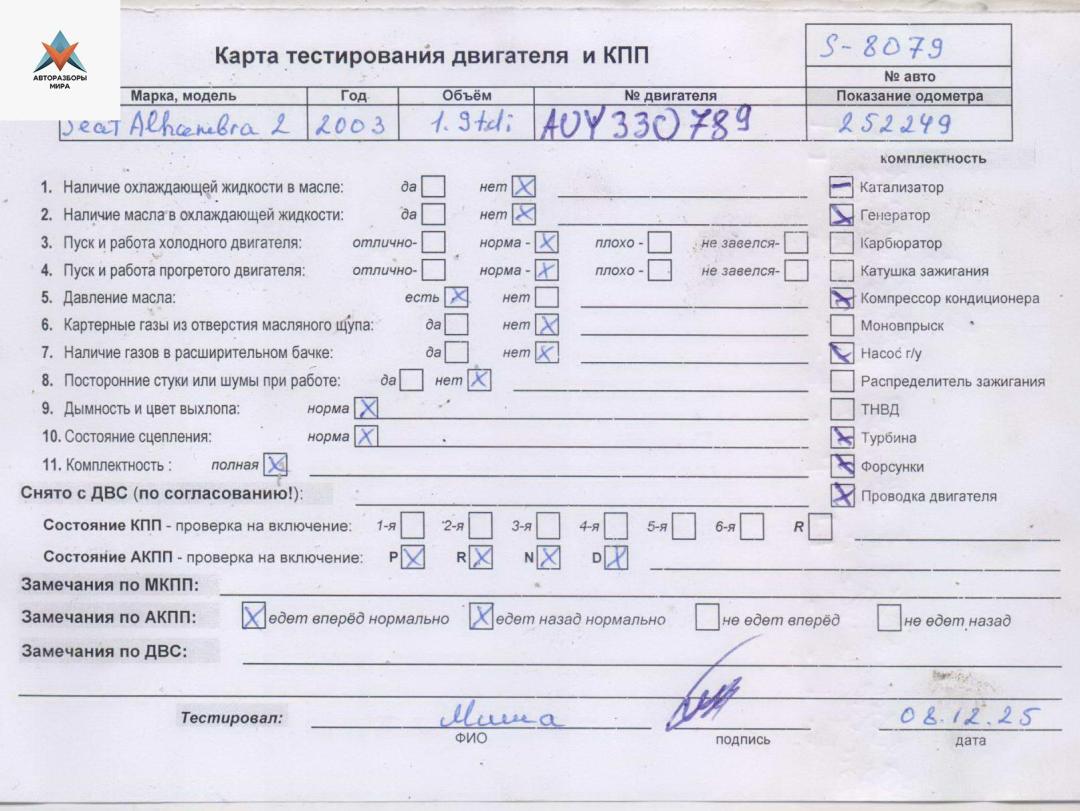 АВТОРАЗБОРЫ
МИРА
Карта тестирования двигателя и КПП
S-8079
№ авто
Марка, модель Год Объём № двигателя Показание одометра
Seat Alhambra 2 2003 1.9tdi AUY330789 252249
комплектность
1. Наличие охлаждающей жидкости в масле: да нет Катализатор
2. Наличие масла в охлаждающей жидкости: да нет Генератор
3. Пуск и работа холодного двигателя: отлично- норма - плохо - не завелся- Карбюратор
4. Пуск и работа прогретого двигателя: отлично- норма - плохо - не завелся- Катушка зажигания
5. Давление масла: есть нет Компрессор кондиционера
6. Картерные газы из отверстия масляного щупа: да нет Моновпрыск
7. Наличие газов в расширительном бачке: да нет Насос г/у
8. Посторонние стуки или шумы при работе: да нет Распределитель зажигания
9. Дымность и цвет выхлопа: норма ТНВД
10. Состояние сцепления: норма Турбина
11. Комплектность : полная Форсунки
Снято с ДВС (по согласованию!): Проводка двигателя
Состояние КПП - проверка на включение: 1-я 2-я 3-я 4-я 5-я 6-я R
Состояние АКПП - проверка на включение: P R N D
Замечания по МКПП:
Замечания по АКПП: едет вперёд нормально едет назад нормально не едет вперёд не едет назад
Замечания по ДВС:
Тестировал: Миша 08.12.25
ФИО подпись дата